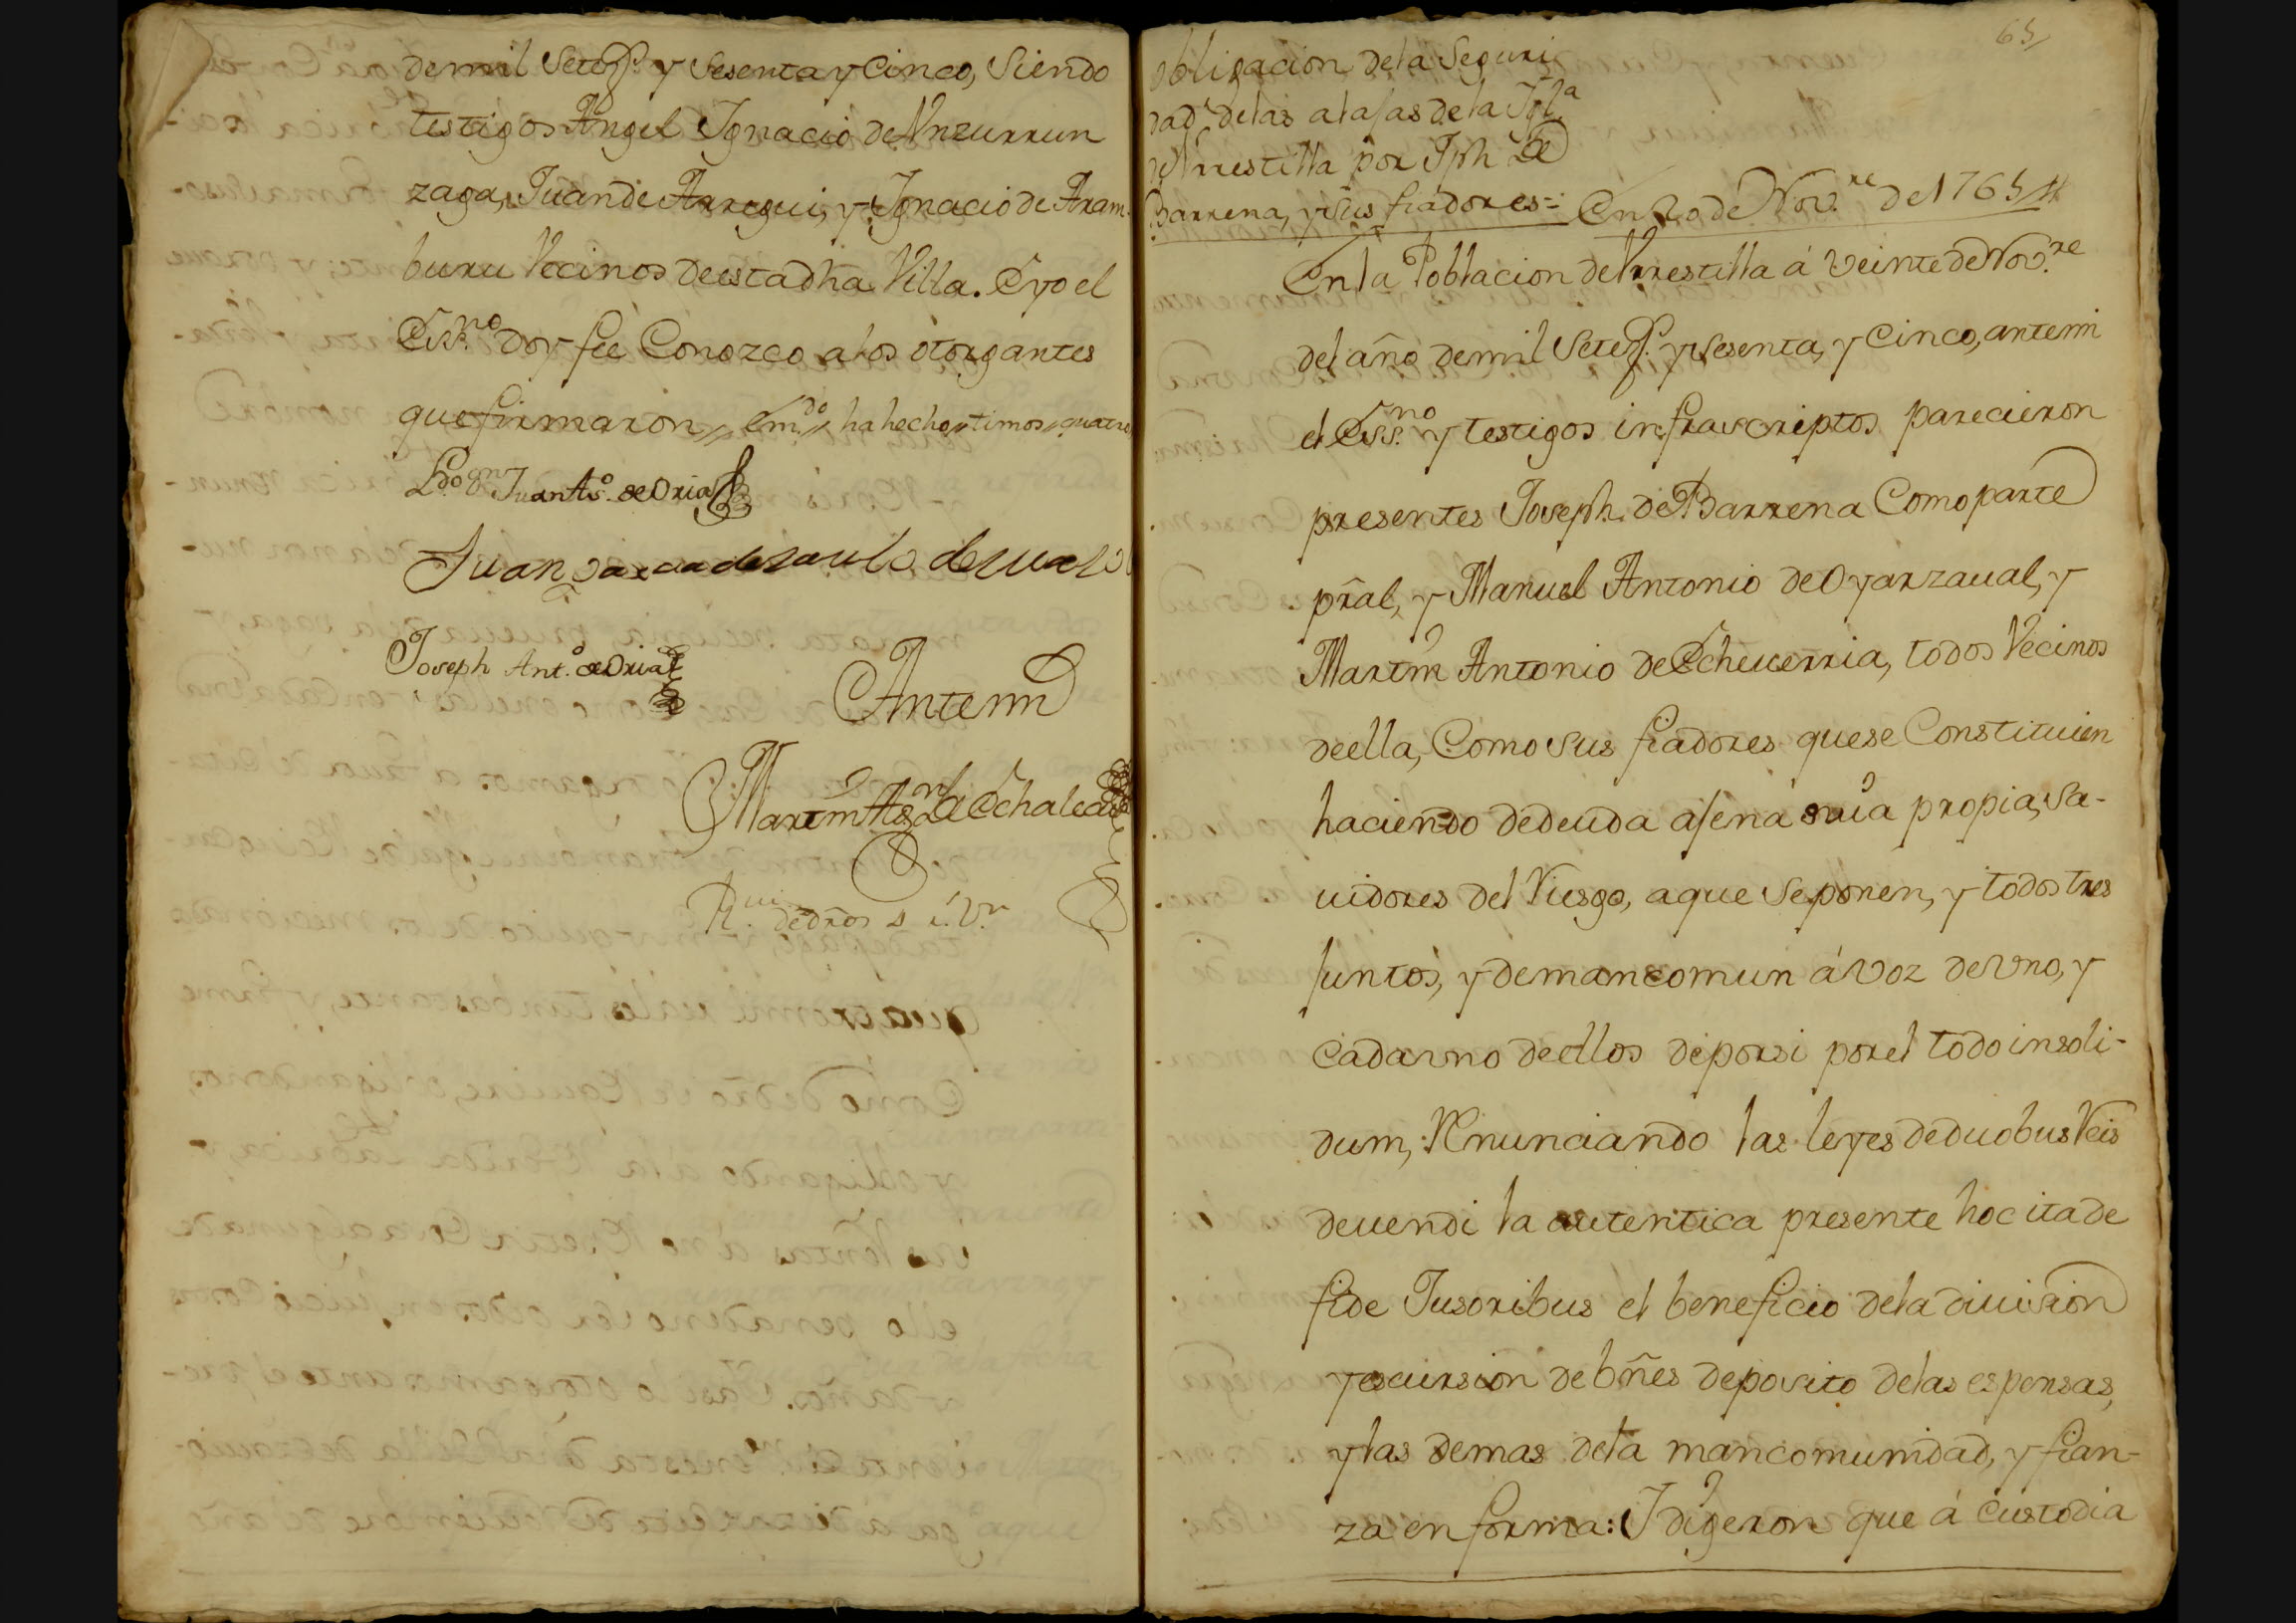 demil Setez.s y Sesenta y Cinco, Siendo
testigos Angel Ignacio de Vnzurrun
zaga, Juan de Arregui, y Ignacio de Aram
buru Vecinos de esta dha Villa. E yo el
Ess.no doy feé Conozco a los otorgantes
que firmaron, Em.do ha hecho, timos, quatro
Ldo dn Juan As.o de Oria
Juan
Joseph Ant.o de Oria
Antemi
Martin As.n de Echaleca
de dros
65
obligacion de la Seguri
dad de las alajas de la Igl.a
de Vrrestilla por Jph de
Barrena, y sus fiadores= En 20 de Nov.re de 1765
En la Poblacion de Vrrestilla á veinte de Nov.re
del año de mil Setez.s y sesenta, y Cinco, antemi
el Ess.no y testigos infrascriptos parecieron
presentes Joseph de Barrena Como parte
pral, y Manuel Antonio de Oyarzaual, y
Martin Antonio de Echeuerria, todos Vecinos
de ella, Como sus fiadores que se Constituien
haciendo de deuda ajena suia propia, Sa-
uidores del Riesgo, a que se ponen, y todos tres
juntos, y de mancomun á voz de vno, y
cada vno de ellos de por si por el todo insoli-
dum, Renunciando las leyes de duobus Reis
deuendi la autentica presente hoc ita de
fide Jusoribus el beneficio de la diuision
y escursion de bñes deposito de las espensas,
y las demas de la mancomunidad, y fian-
za en forma: I digeron que á custodia